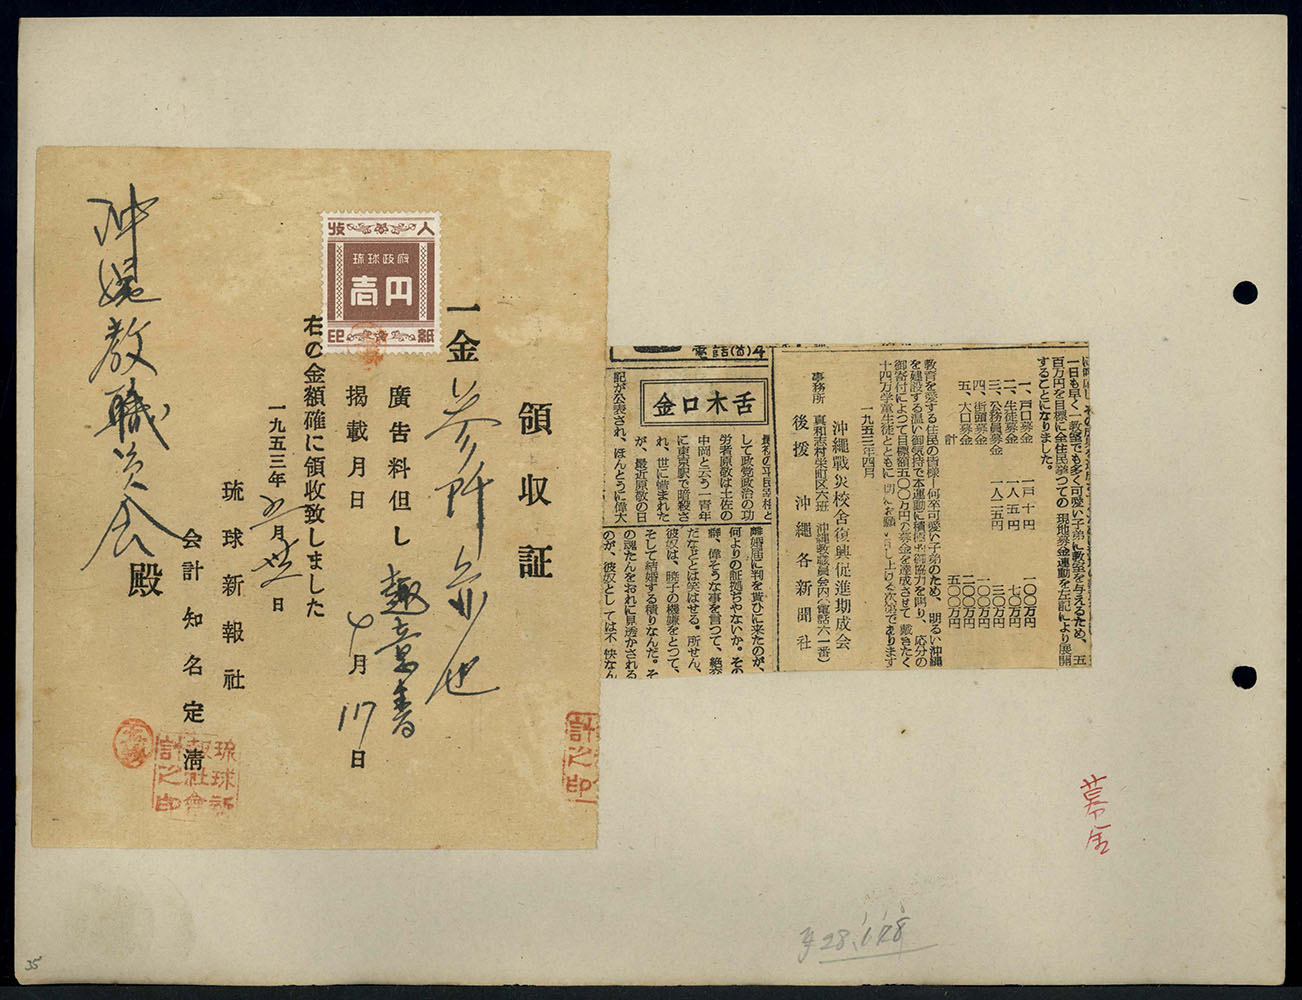 一、戸口募金　一戸十円　一〇〇万円
二、生徒募金　一人五円　七〇万円
三、公務員募金　一人二五円　三〇万円
四、街頭募金　一〇〇万円
五、大口募金　二〇〇万円
計　五〇〇万円
教育を愛する住民の皆様！何卒可愛い子弟のため、明るい沖縄
を建設する温い御気持で本運動に積極的御協力を賜り、応分の
御寄付によつて目標額五〇〇万円の募金を達成させて戴きたく
十四万学童生徒とともに
一九五三年四月
沖縄戰災校舎復興促進期成会
事務所　真和志村栄町区六班　沖縄教職員会内（電話六一番）
後援　沖縄各新聞社
百万円を目標に全住民挙つての現地募金運動を左記により展開
することになりました。
一日も早く一教室でも多く可愛い子弟に教室を与えるため、五
電話(1)4
舌木口金
して政党政治の功
労者原敬は土佐の
中岡と云う一青年
に東京駅で暗殺さ
れ、世に惜まれた
が、最近原敬の日
記が公表され、ほんとうに偉大
離婚届に判を貰ひに来たのが、
何よりの証拠ぢやないか。その
癖、偉そうな事を言つて、絶交
だなどとは笑はせる。所せん、
彼奴は、暁子の機嫌をとつて、
そして結婚する積りなんだ。そ
の魂たんをおれに見透かされる
のが、彼奴としては不快なん
領収証
一金　参阡　也
廣告料但し　趣意書
掲載月日　4月17日
右の金額確に領收致しました
一九五三年　月　日
琉球新報社
会計　知名定清
沖縄教職員会　殿
收入
琉球政府
壱円
印紙
琉球新
報社會
計之印
計之印
募金
28.1.28
35